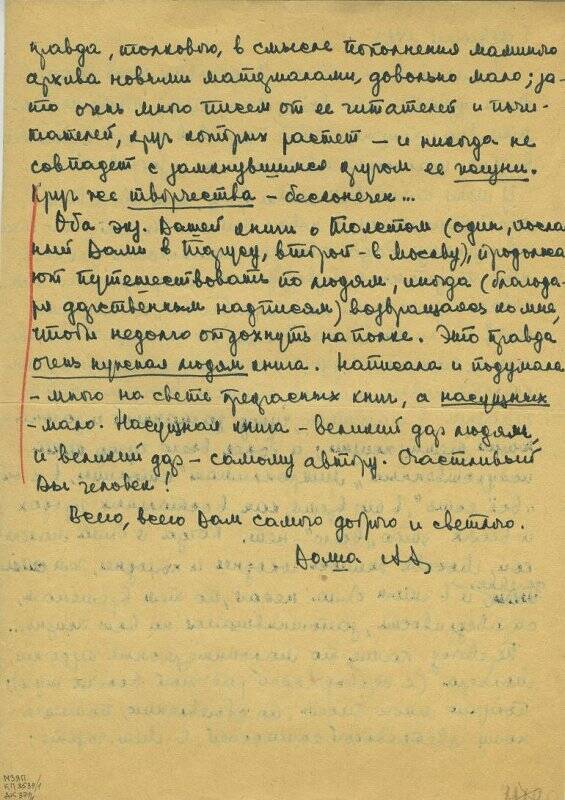 правда, толкового, в смысле пополнения маминого
архива новыми материалами, довольно мало; за-
то очень много писем от ее читателей и почи-
тателей, круг которых растет – и никогда не
совпадет с замкнувшимся кругом ее жизни.
Круг же творчества – бесконечен...
Оба экз. Вашей книги о Толстом (один, послан-
ный Вами в Тарусу, второй – в Москву), продолжа-
ют путешествовать по людям, иногда (благода-
ря дарственным надписям) возвращаясь ко мне,
чтобы недолго отдохнуть на полке. Это правда
очень нужная людям книга. Написала и подумала
– много на свете прекрасных книг, а насущных
– мало. Насущная книга – великий дар людям,
и великий дар – самому автору. Счастливый
Вы человек!
Всего, всего Вам самого доброго и светлого.
Ваша АЭ
КП 3539/1